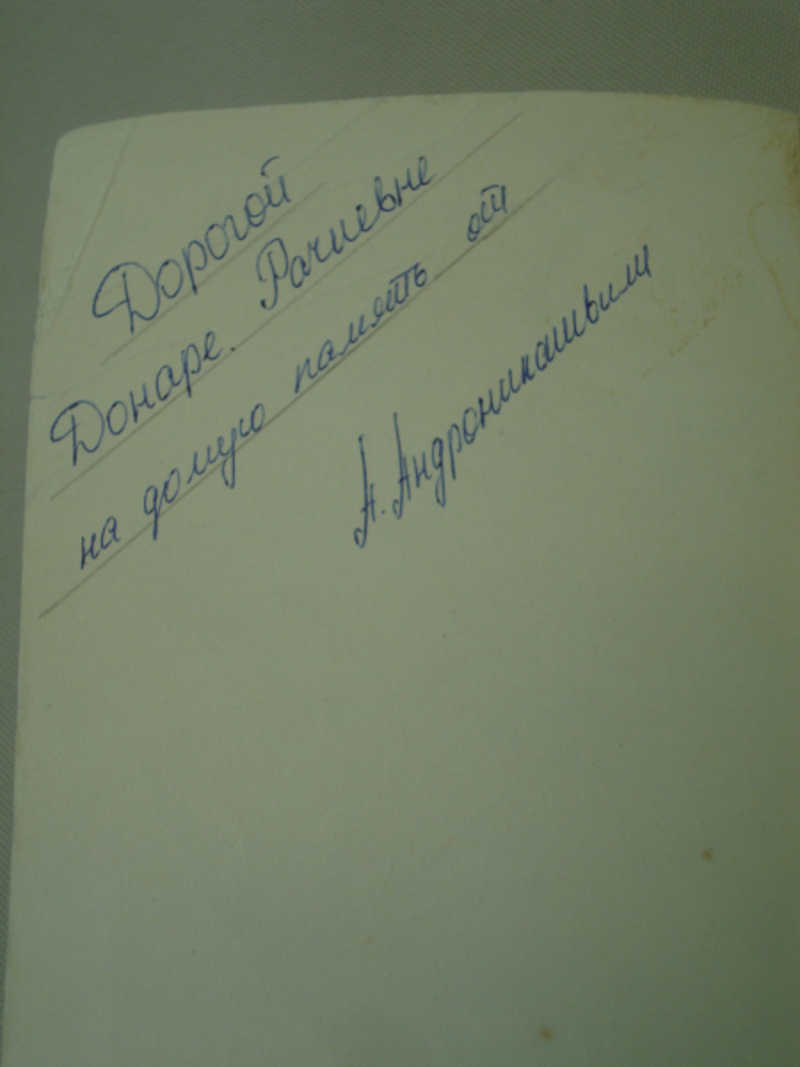 Дорогой
Донаре Рачиевне
на домую память от
А. Андроникашвили